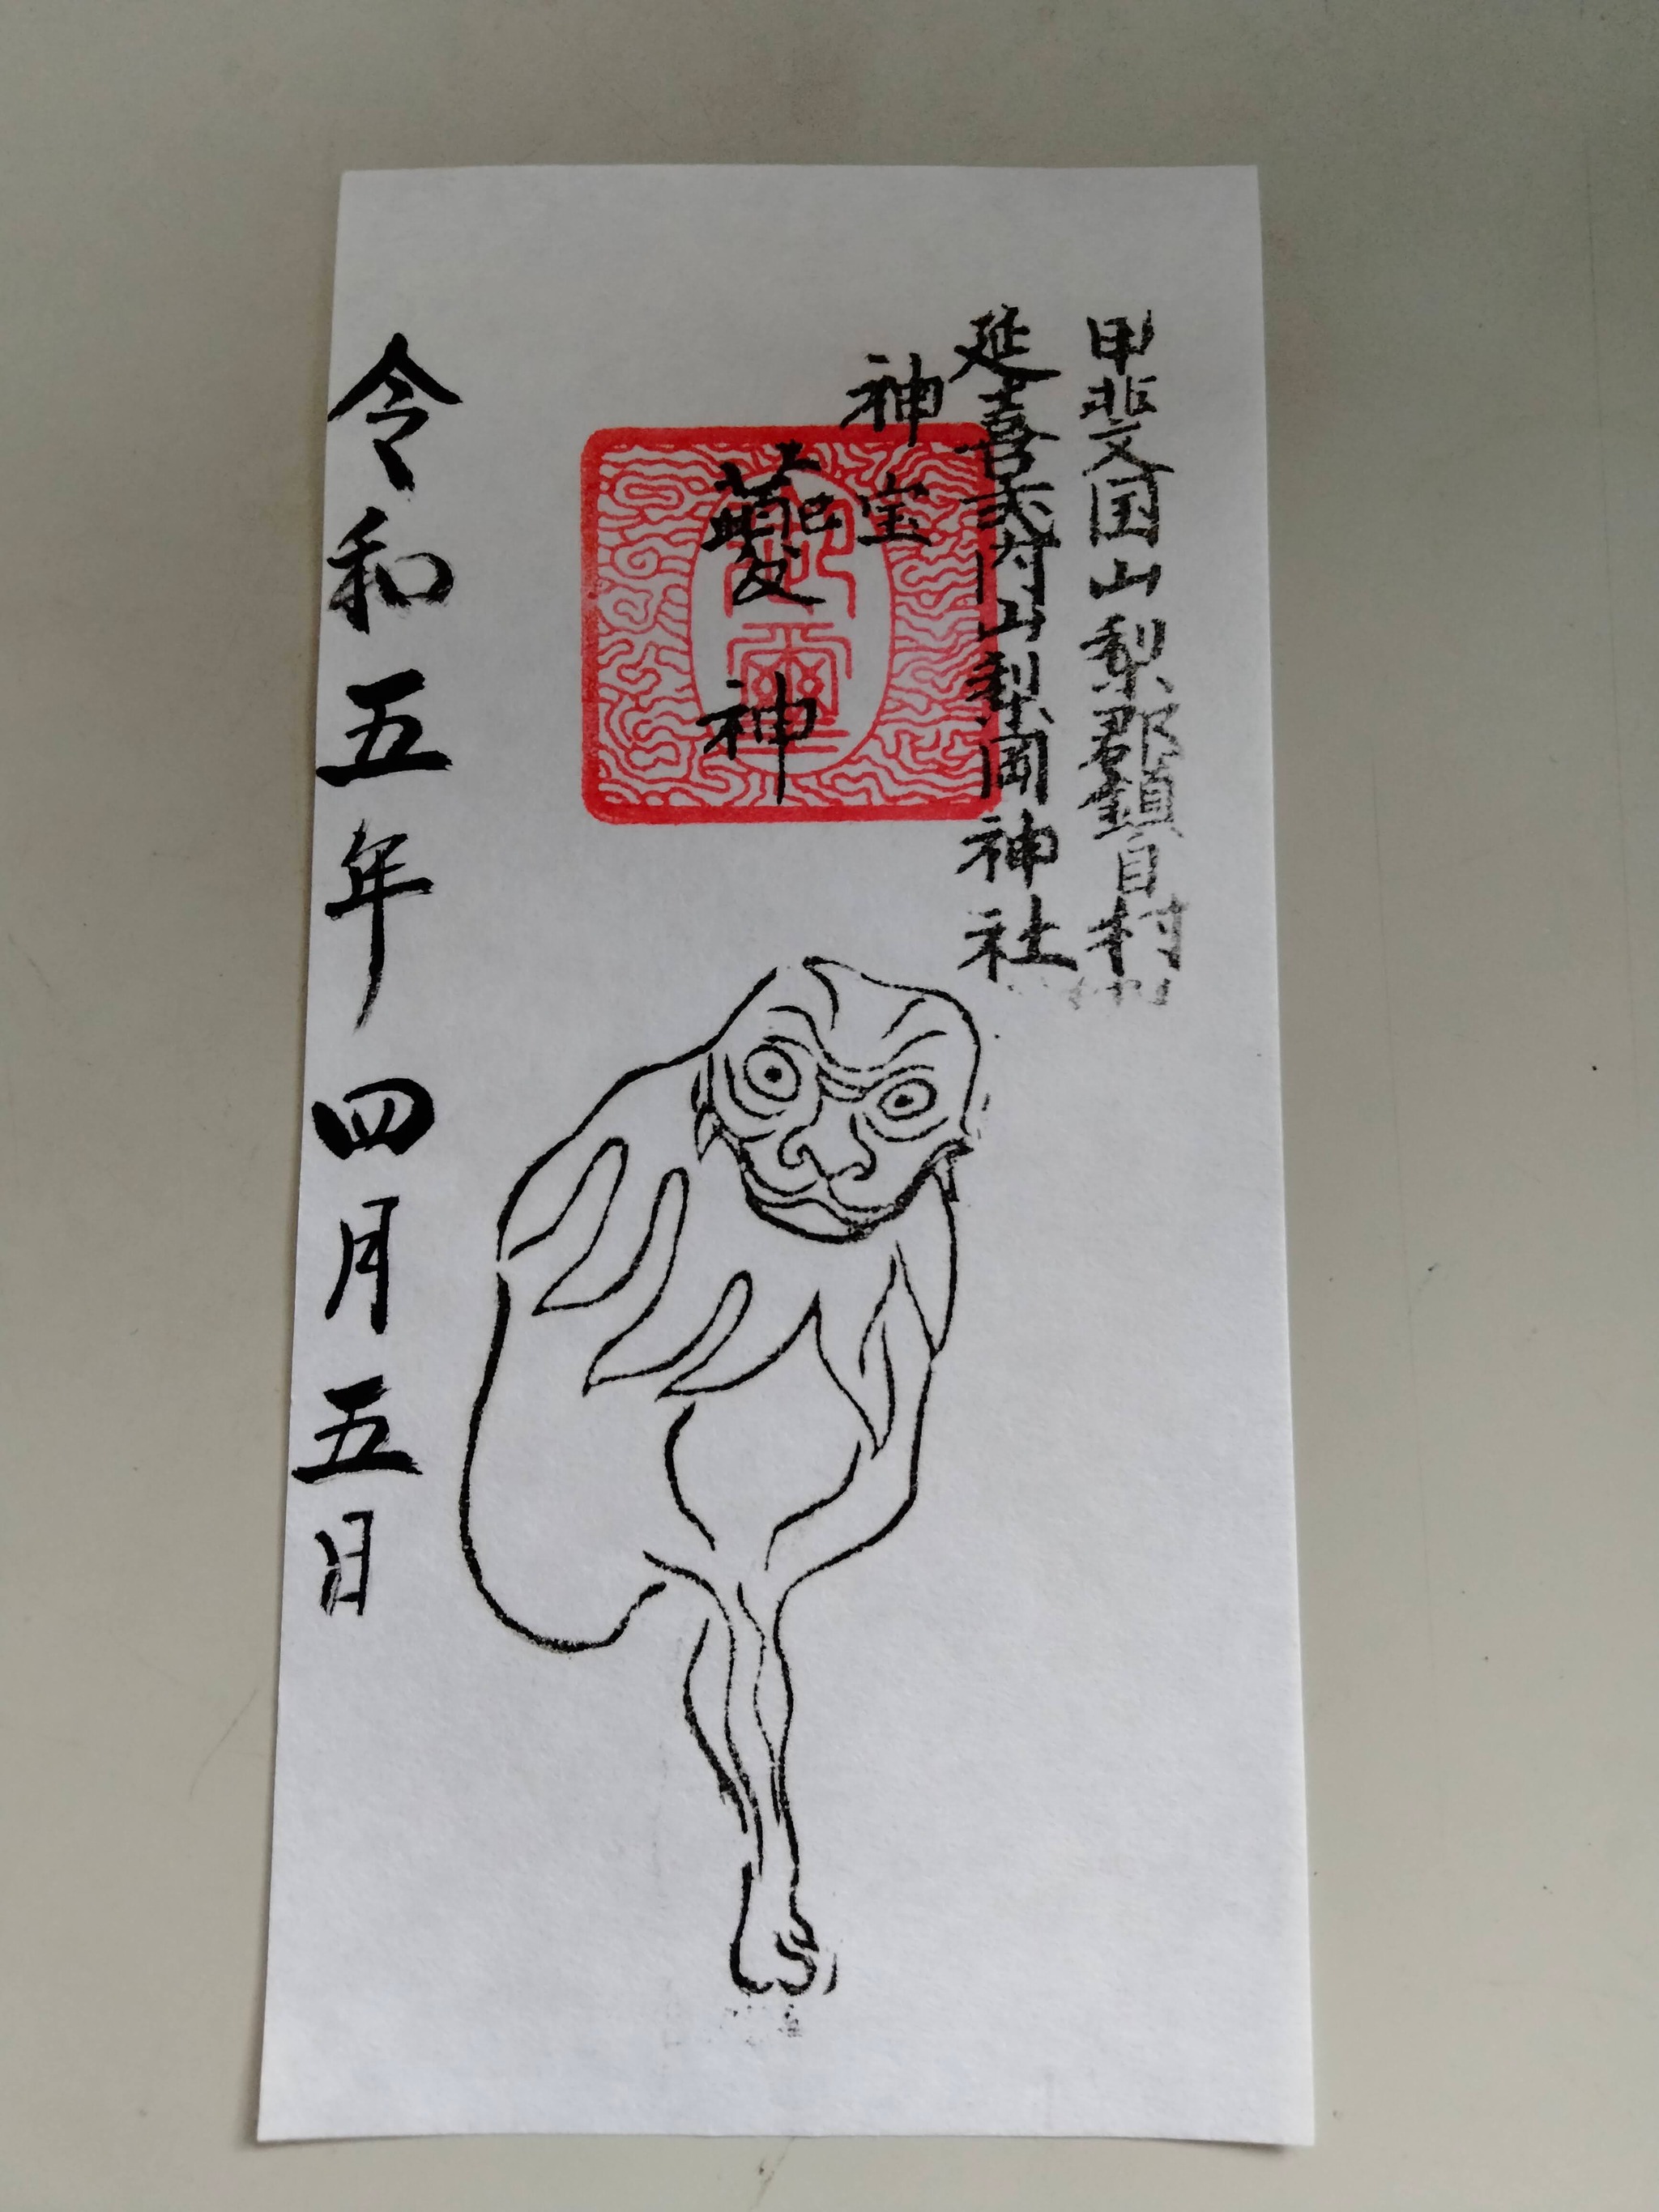 甲斐国山梨郡鎮目村
延喜式内山梨岡神社
神宝
夔神
令和五年四月五日